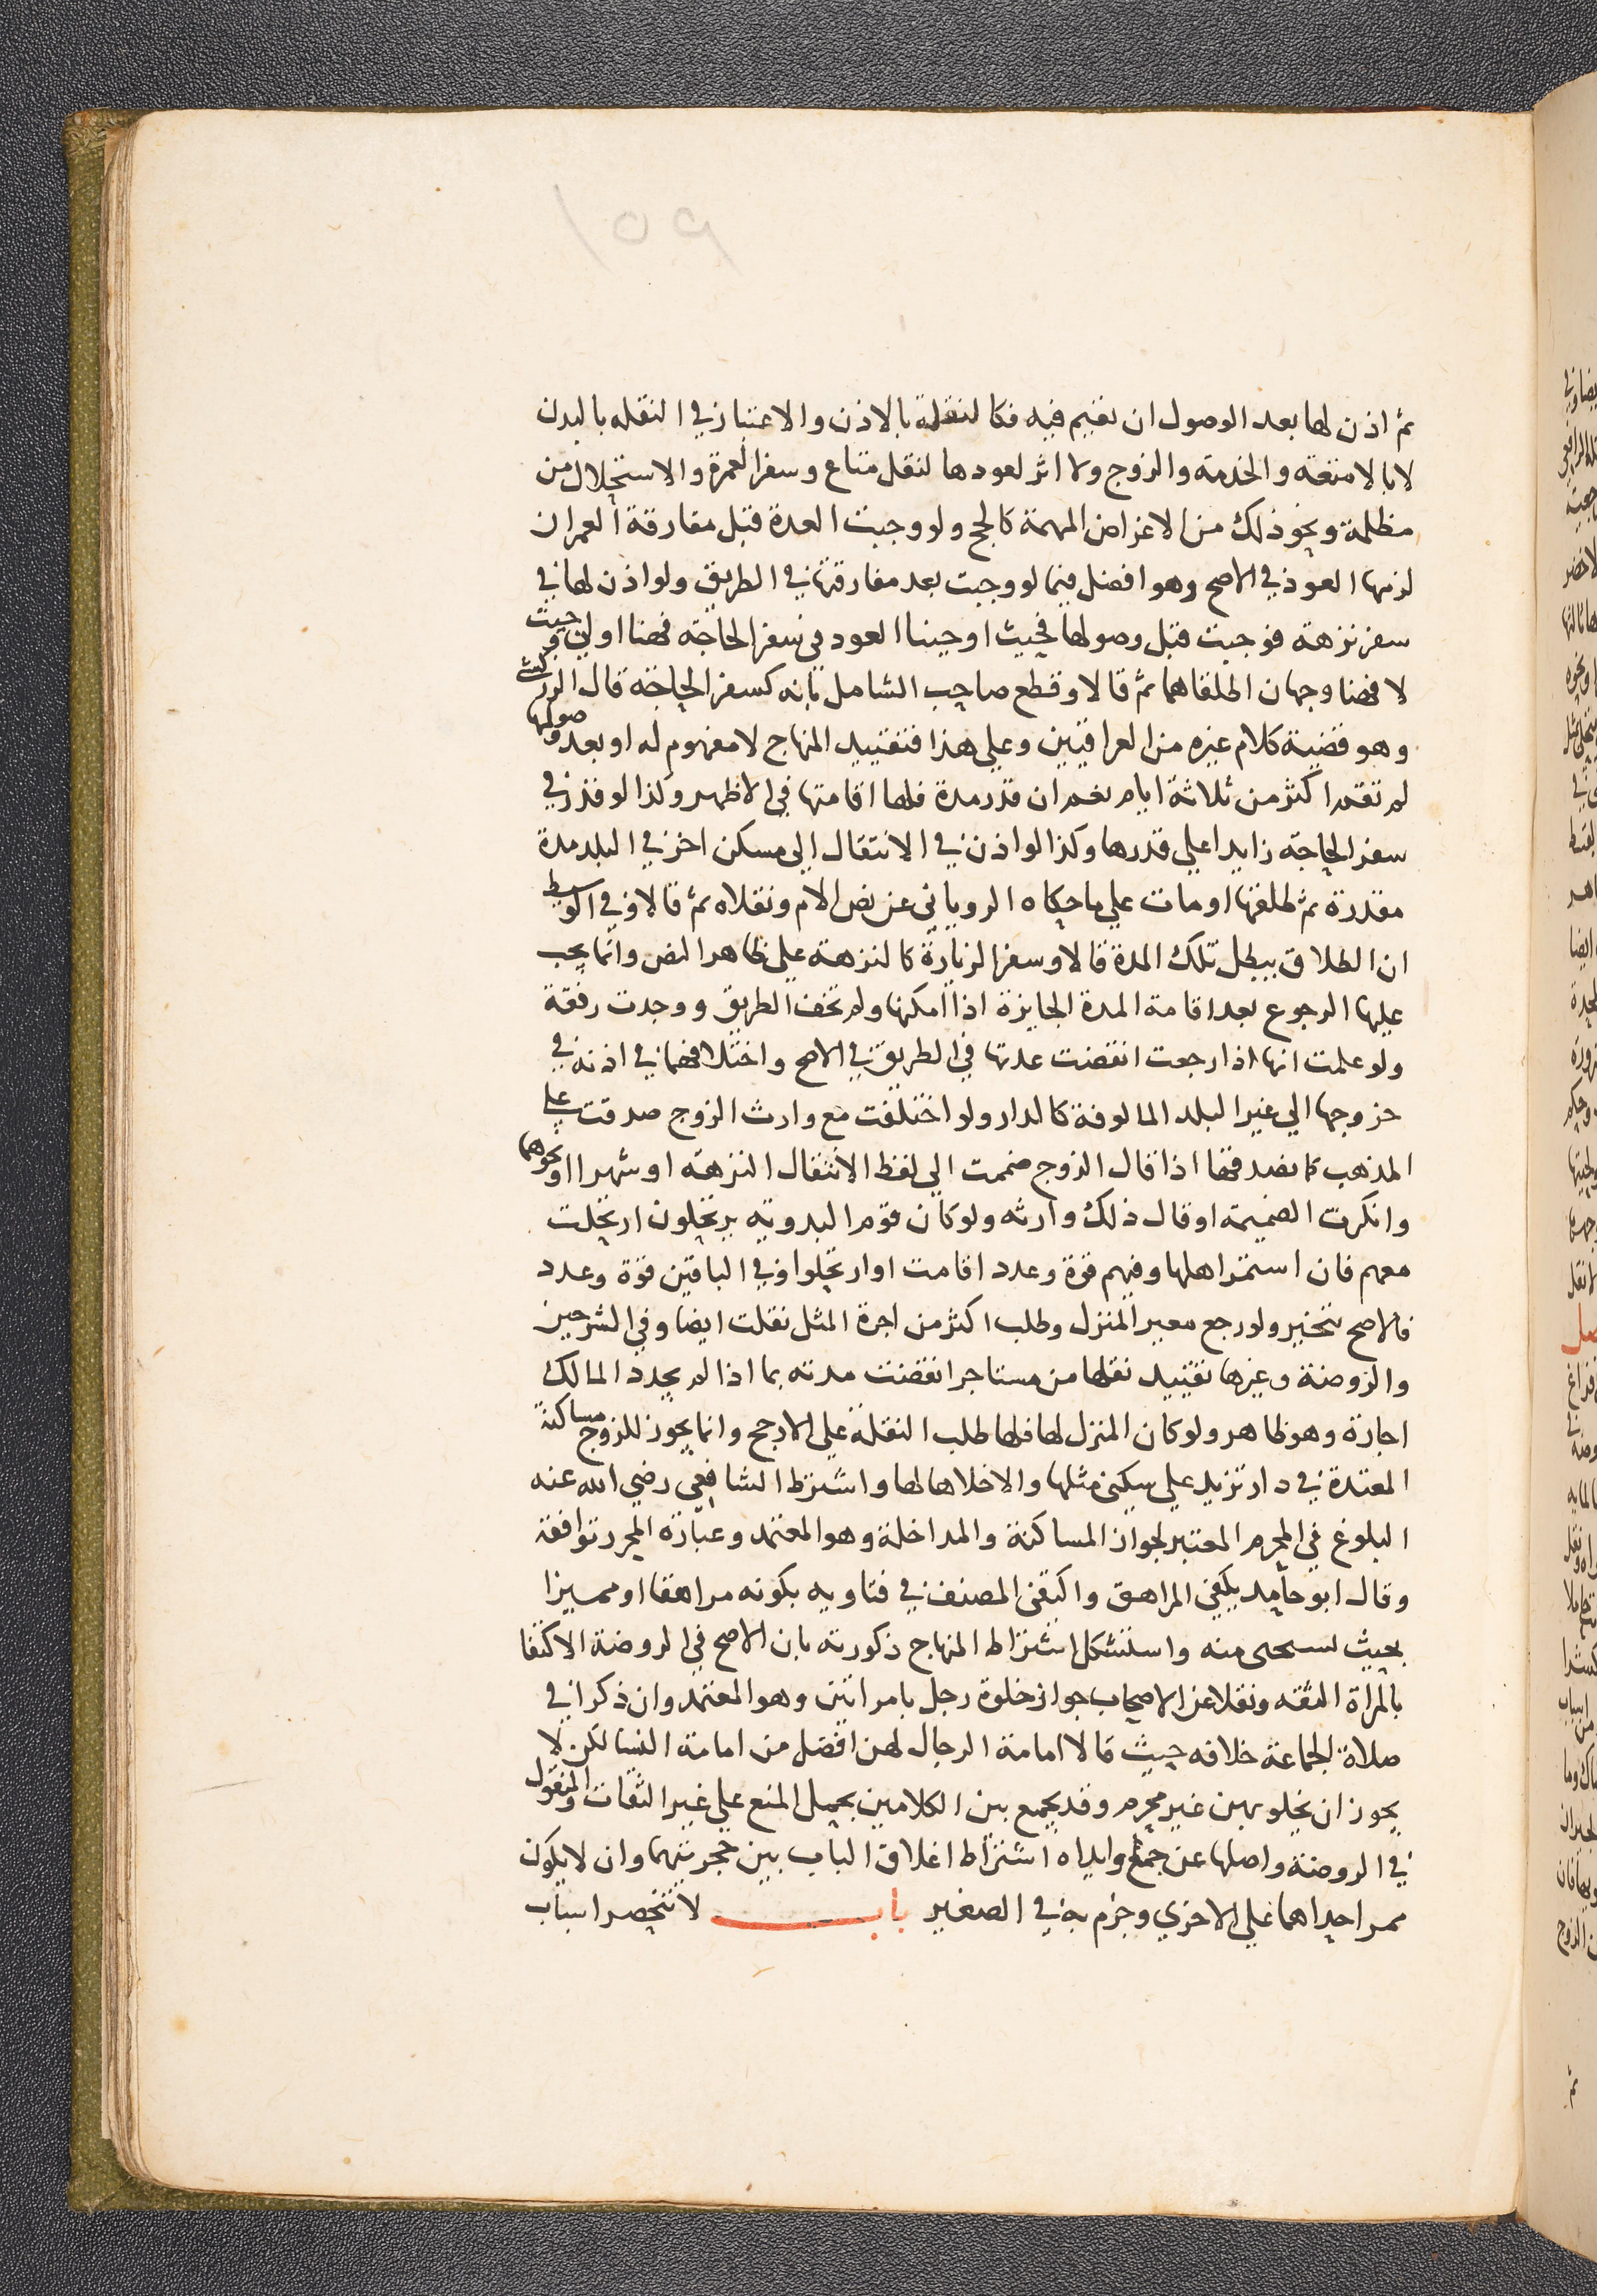 ١٥٩
ثم اذن لها بعد الوصول ان تقيم فيه فكالنقلة بالاذن والاعتبار في النقله بالبدن
لا بالامتعة والخدمة والزوج ولا اثر لعودها لنقل متاع وسفر العمرة والاستحلال من
مظلمة ونحو ذلك من الاغراض المهمة كالحج ولو وجبت العدة قبل مفارقة العمران
لزمها العود في الاصح وهو افضل فيما لو وجبت بعد مفارقتها في الطريق ولو اذن لها في
سفر نزهة فوجبت قبل وصولها فحيث اوجبنا العود في سفر الحاجة فهنا اولى وحيث
لا فهنا وجهان اطلقاهما ثم قالا وقطع صاحب الشامل بانه كسفر الحاجة قال الزركشي
وهو قضية كلام غيره من العراقيين وعلى هذا فتقييد المنهاج لا مفهوم له او بعد وصولها
لم تقم اكثر من ثلاثة ايام نعم ان قدر مدة فلها اقامتها في الاظهر وكذا لو قدر في
سفر الحاجة زايدا على قدرها وكذا لو اذن في الانتقال الى مسكن اخر في البلد مدة
مقدرة ثم طلقها او مات على ما حكاه الروياني عن نص الام ونقلاه ثم قالا وفي الوسيط
ان الطلاق يبطل تلك المدة قالا وسفر الزيارة كالنزهة على ظاهر النص وانما يجب
عليها الرجوع بعد اقامة المدة الجايزة اذا امكنها ولم تخف الطريق ووجدت رفقة
ولو علمت انها اذا رجعت انقضت عدتها في الطريق في الاصح واختلافهما في اذنه في
خروجها الى غير البلد المالوفة كالدار ولو اختلفت مع وارث الزوج صدقت على
المذهب كما نصدقها اذا قال الزوج ضممت الى لفظ الانتقال النزهة او شهرا او نحوهما
وانكرت الضميمة او قال ذلك وارثه ولو كان قوم البدوية يرتحلون ارتحلت
معهم فان استمر اهلها وفيهم قوة وعدد اقامت او ارتحلوا وفي الباقين قوة وعدد
فالاصح تتخير ولو رجع معير المنزل وطلب اكثر من اجرة المثل نقلت ايضا وفي الشرحين
والروضة وغيرها تقييد نقلها من مستاجر انقضت مدته بما اذا لم يجدد المالك
اجارة وهو ظاهر ولو كان المنزل لها فلها طلب النقلة على الارجح وانما يجوز للزوج مساكنة
المعتدة في دار تزيد على سكنى مثلها والا خلاها لها واشترط الشافعي رضي الله عنه
البلوغ في المحرم المعتبر لجواز المساكنة والمداخلة وهو المعتمد وعبارة المحرر توافقه
وقال ابو حامد يكفي المراهق واكتفى المصنف في فتاويه بكونه مراهقا او مميزا
بحيث يستحى منه واستشكل اشتراط المنهاج ذكورته بان الاصح في الروضة الاكتفا
بالمراة الثقه ونقلا عن الاصحاب جواز خلوة رجل بامراتين وهو المعتمد وان ذكرا في
صلاة الجماعة خلافه حيث قالا امامة الرجال لهن افضل من امامة النسا لكن لا
يجوز ان يخلو بهن غير محرم وقد يجمع بين الكلامين بحمل المنع على غير الثقات والمنقول
في الروضة واصلها عن جمع وايداه اشتراط اغلاق الباب بين حجرتيهما وان لا يكون
ممر احداهما على الاخرى وجزم به في الصغير باب لا تنحصر اسباب